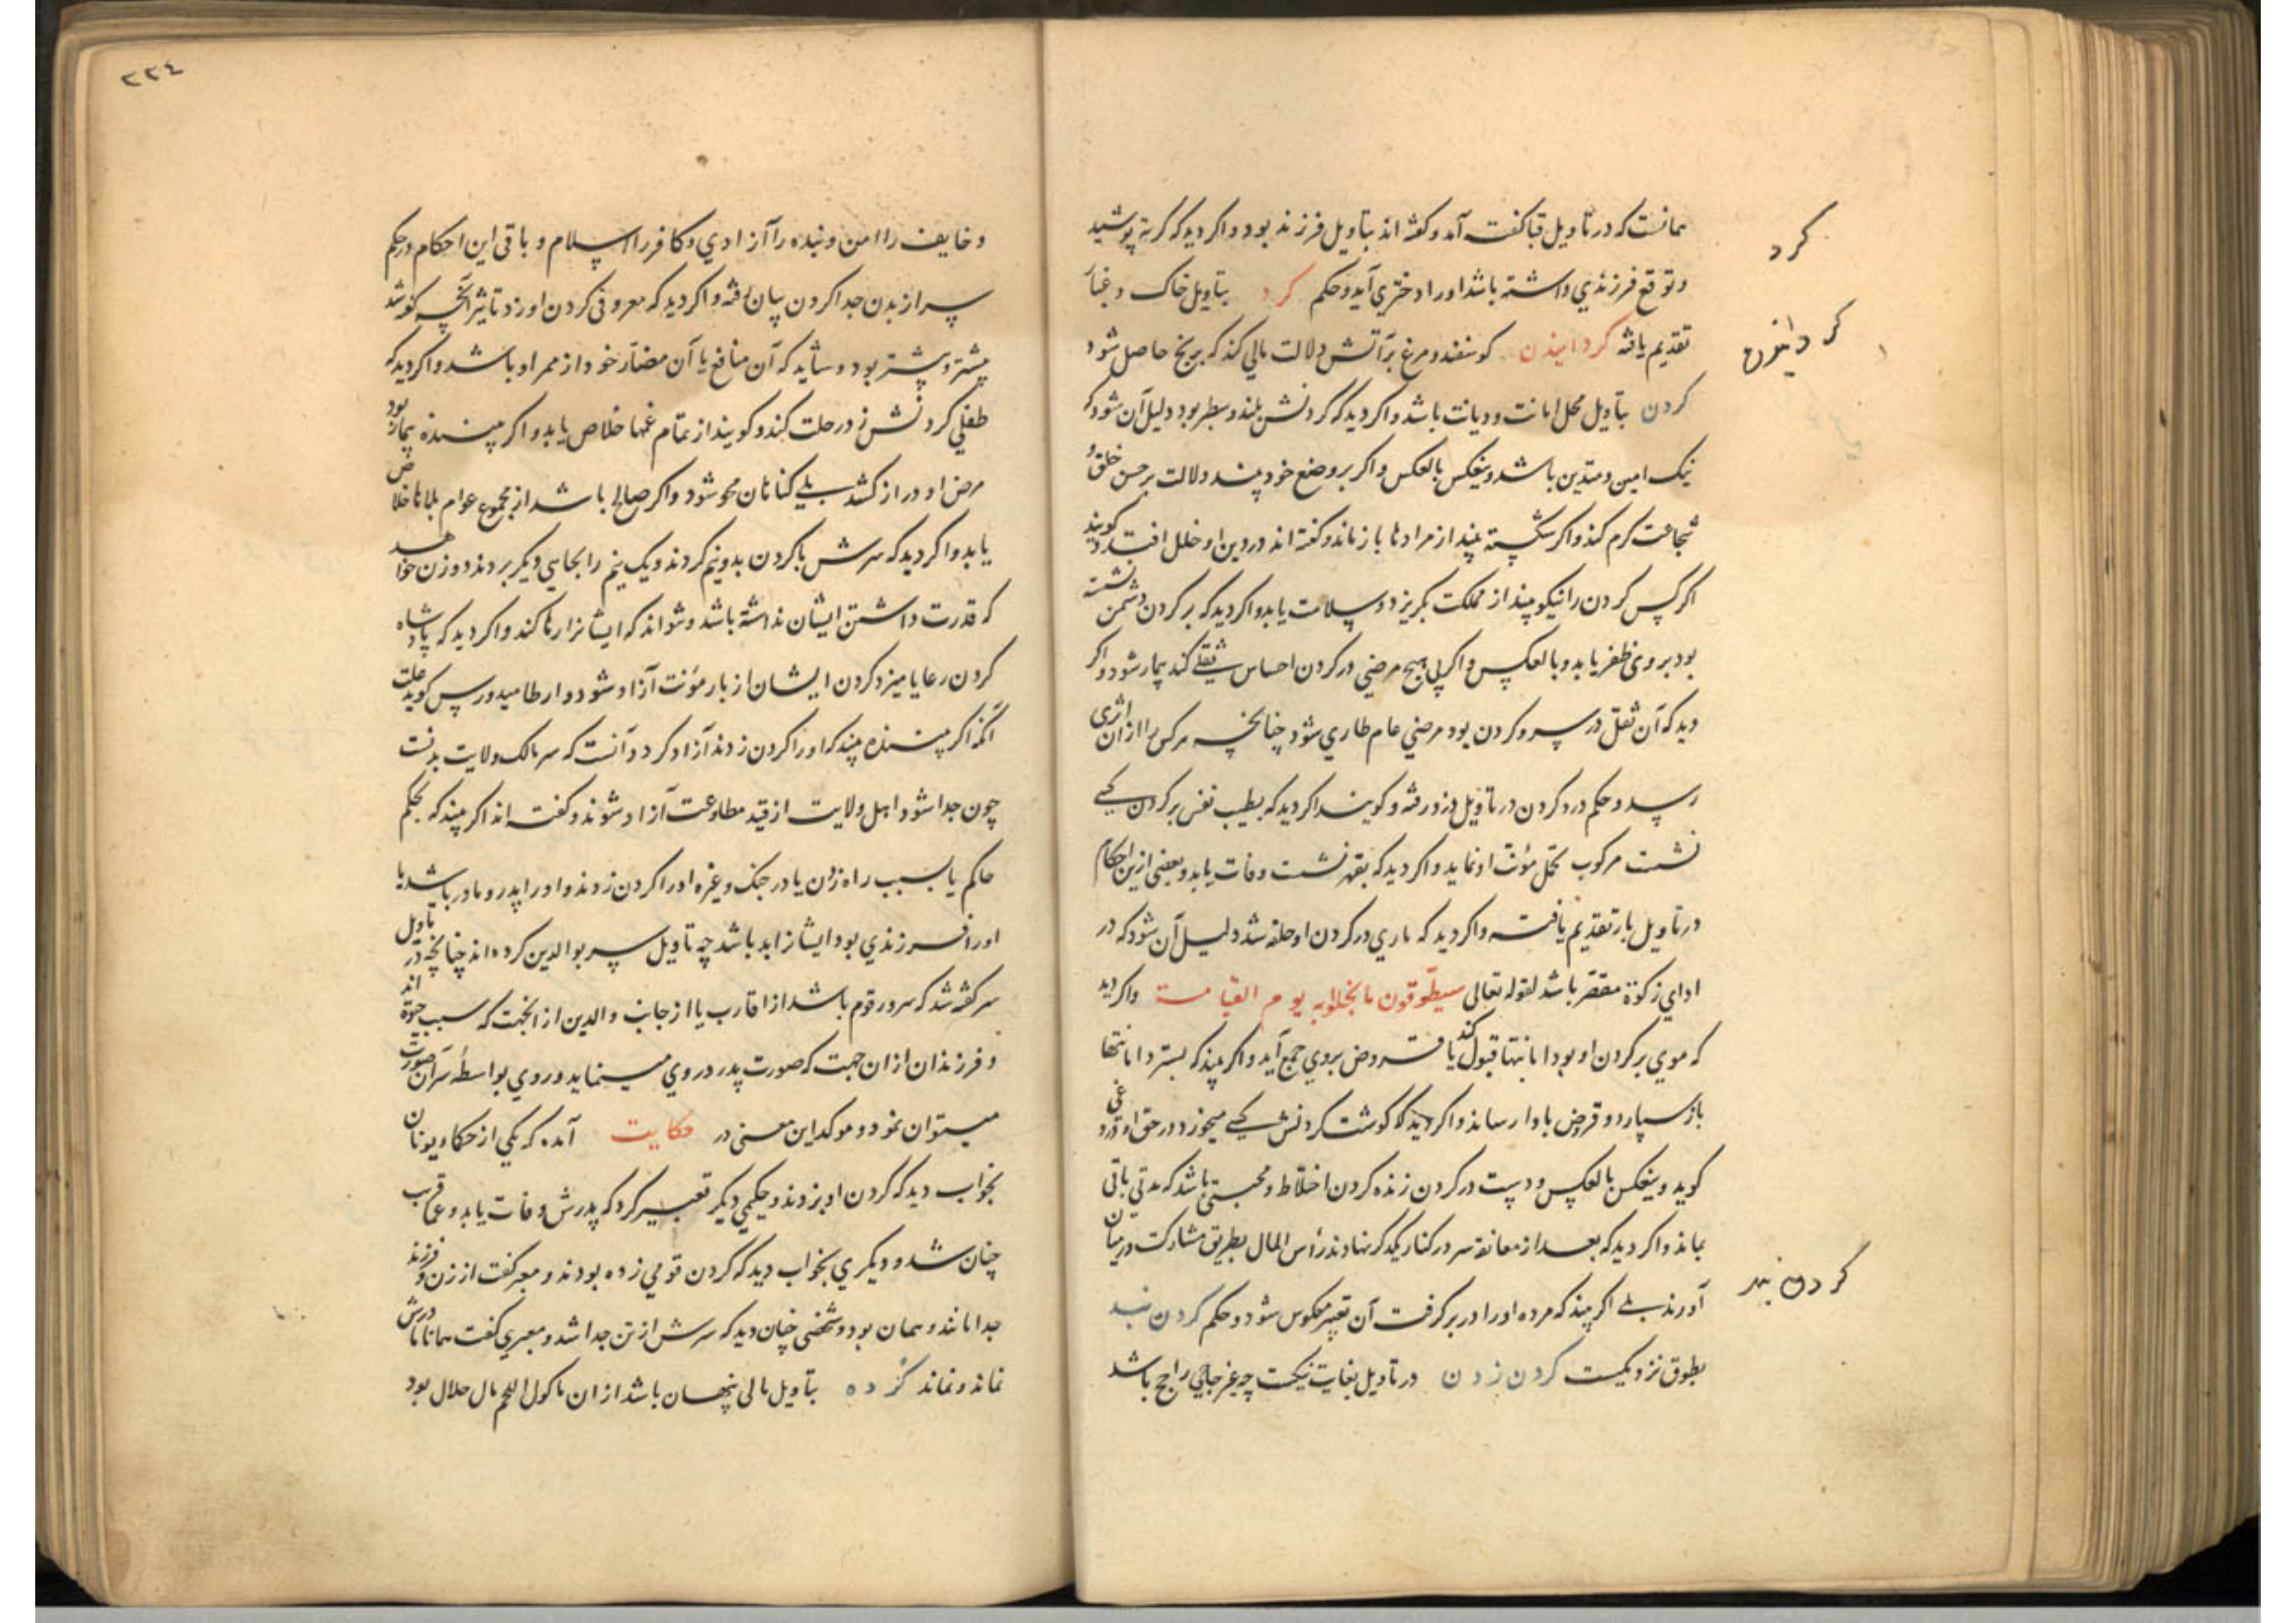 همانست که در تاویل قبا گفت آمد و گفته اند بتاویل فرزند بود و اکر دید که کرته پوشید
و توقع فرزندی داشته باشد اورا دختری آید و حکم کرد بتاویل خاک و غبار
تقدیم یافته کردانیدن کوسفند و مرغ بر آتش دلالت بمالی کند که برنج حاصل شود
کردن بتاویل محل امانت و دیانت باشد و اکر دید که کردنش بلند و سطبر بود دلیل آن شود که
نیک امین و متدین باشد و ینعکس بالعکس و اکر بر وضع خود بیند دلالت بر حسن خلق و
شجاعت کرم کند و اکر شکسته بیند از مرادها باز ماند و گفته اند در دین او خلل افتد و کویند
اکر کس کردن را نیکو بیند از مملکت بکریزد و سلامت یابد و اکر دید که بر کردن دشمن نشسته
بود بر وی ظفر یابد و بالعکس و اکر بی هیچ مرضی در کردن احساس ثقلی کند بیمار شود و اکر
دید که آن ثقل در سر و کردن بود مرضی عام طاری شود چنانچه هر کس را از آن اثری
رسد و حکم درد کردن در تاویل درد رفته و کویند اکر دید که بطیب نفس بر کردن کسی
نشست مرکوب تحمل مؤنت او نماید و اکر دید که بقهر نشست وفات یابد و بعضی ازین احکام
در تاویل بار تقدیم یافت و اکر دید که ماری در کردن او حلقه شد دلیل آن شود که در
ادای زکوة مقصر باشد لقوله تعالی سیطوقون ما بخلوا به یوم القیامة و اکر دید
که موی بر کردن او بود امانتها قبول کند یا قروض بر وی جمع آید و اکر بیند که بسترد امانتها
باز سپارد و قروض بادا رساند و اکر دید که کوشت کردنش کسی میخورد در حق او
کوید و ینعکس بالعکس و دست در کردن زنده کردن اختلاط و محبتی باشد که مدتی باقی
بماند و اکر دید که بعد از معانقه سر در کنار یکدکر نهادند رأس المال بطریق مشارکت در میان
آورند بلی اکر بیند که مرده او را در بر کرفت آن تعبیر معکوس شود و حکم کردن بند
بطوق نزدیکست کردن زدن در تاویل بغایت نیکست چه غیر حاجی را حج باشد
کرد
کردانیدن
کردن بند
٢٢٤
و خایف را امن و بنده را آزادی و کافر را اسلام و باقی این احکام در حکم
سر از بدن جدا کردن بیان رفته و اکر دید که معروفی کردن او زد تاثیر آنچه کفته شد
بیشتر و بیشتر بود و شاید که آن منافع یا آن مضار خود از ممر او باشد و اکر دید که
طفلی کردنش زد رحلت کند و کویند از تمام غمها خلاص یابد و اکر بیننده بیمار بود
مرض او دراز کشد بلی کناهان محو شود و اکر صالح باشد از مجموع عوام بلاها خلاص
یابد و اکر دید که سرش با کردن بدونیم کردند و یک نیم را بجایی دیکر بردند دو زن خواهد
که قدرت داشتن ایشان نداشته باشد و نتواند که ایشانرا رها کند و اکر دید که پادشاه
کردن رعایا میزد کردن ایشان از بار مؤنت آزاد شود و ارطامیدورس کوید علت
آنکه اکر بیننده بیند که او را کردن زدند آزاد کردد آنست که سر مالک ولایت بدنست
چون جدا شود اهل ولایت از قید مطاوعت آزاد شوند و گفته اند اکر بیند که بحکم
حاکم یا بسبب راه زدن یا در جنک و غیره او را کردن زدند و او را پدر و مادر باشد یا
اورا فرزندی بود ایشانرا بد باشد چه تاویل سر بوالدین کرده اند چنانچه در تاویل
سر کفته شد که سرور قوم باشد از اقارب یا از جانب والدین از آنجهت که سبب حیوة اند
و فرزندان از آن جهت که صورت پدر در وی مینماید و روی بواسطه سر آن صورت
میتوان نمود و موکد این معنی در حکایت آمده که یکی از حکماء یونان
بخواب دید که کردن او بزدند و حکیمی دیکر تعبیر کرد که پدرش وفات یابد و عنقریب
چنان شد و دیکری بخواب دید که کردن قومی زده بودند و معبر کفت از زن و فرزند
جدا مانند و همان بود و شخصی چنان دید که سرش از تن جدا شد و معبری کفت همانا مادرش
نماند و نماند کرده بتاویل مالی پنهان باشد از آن ماکول اللحم مال حلال بود